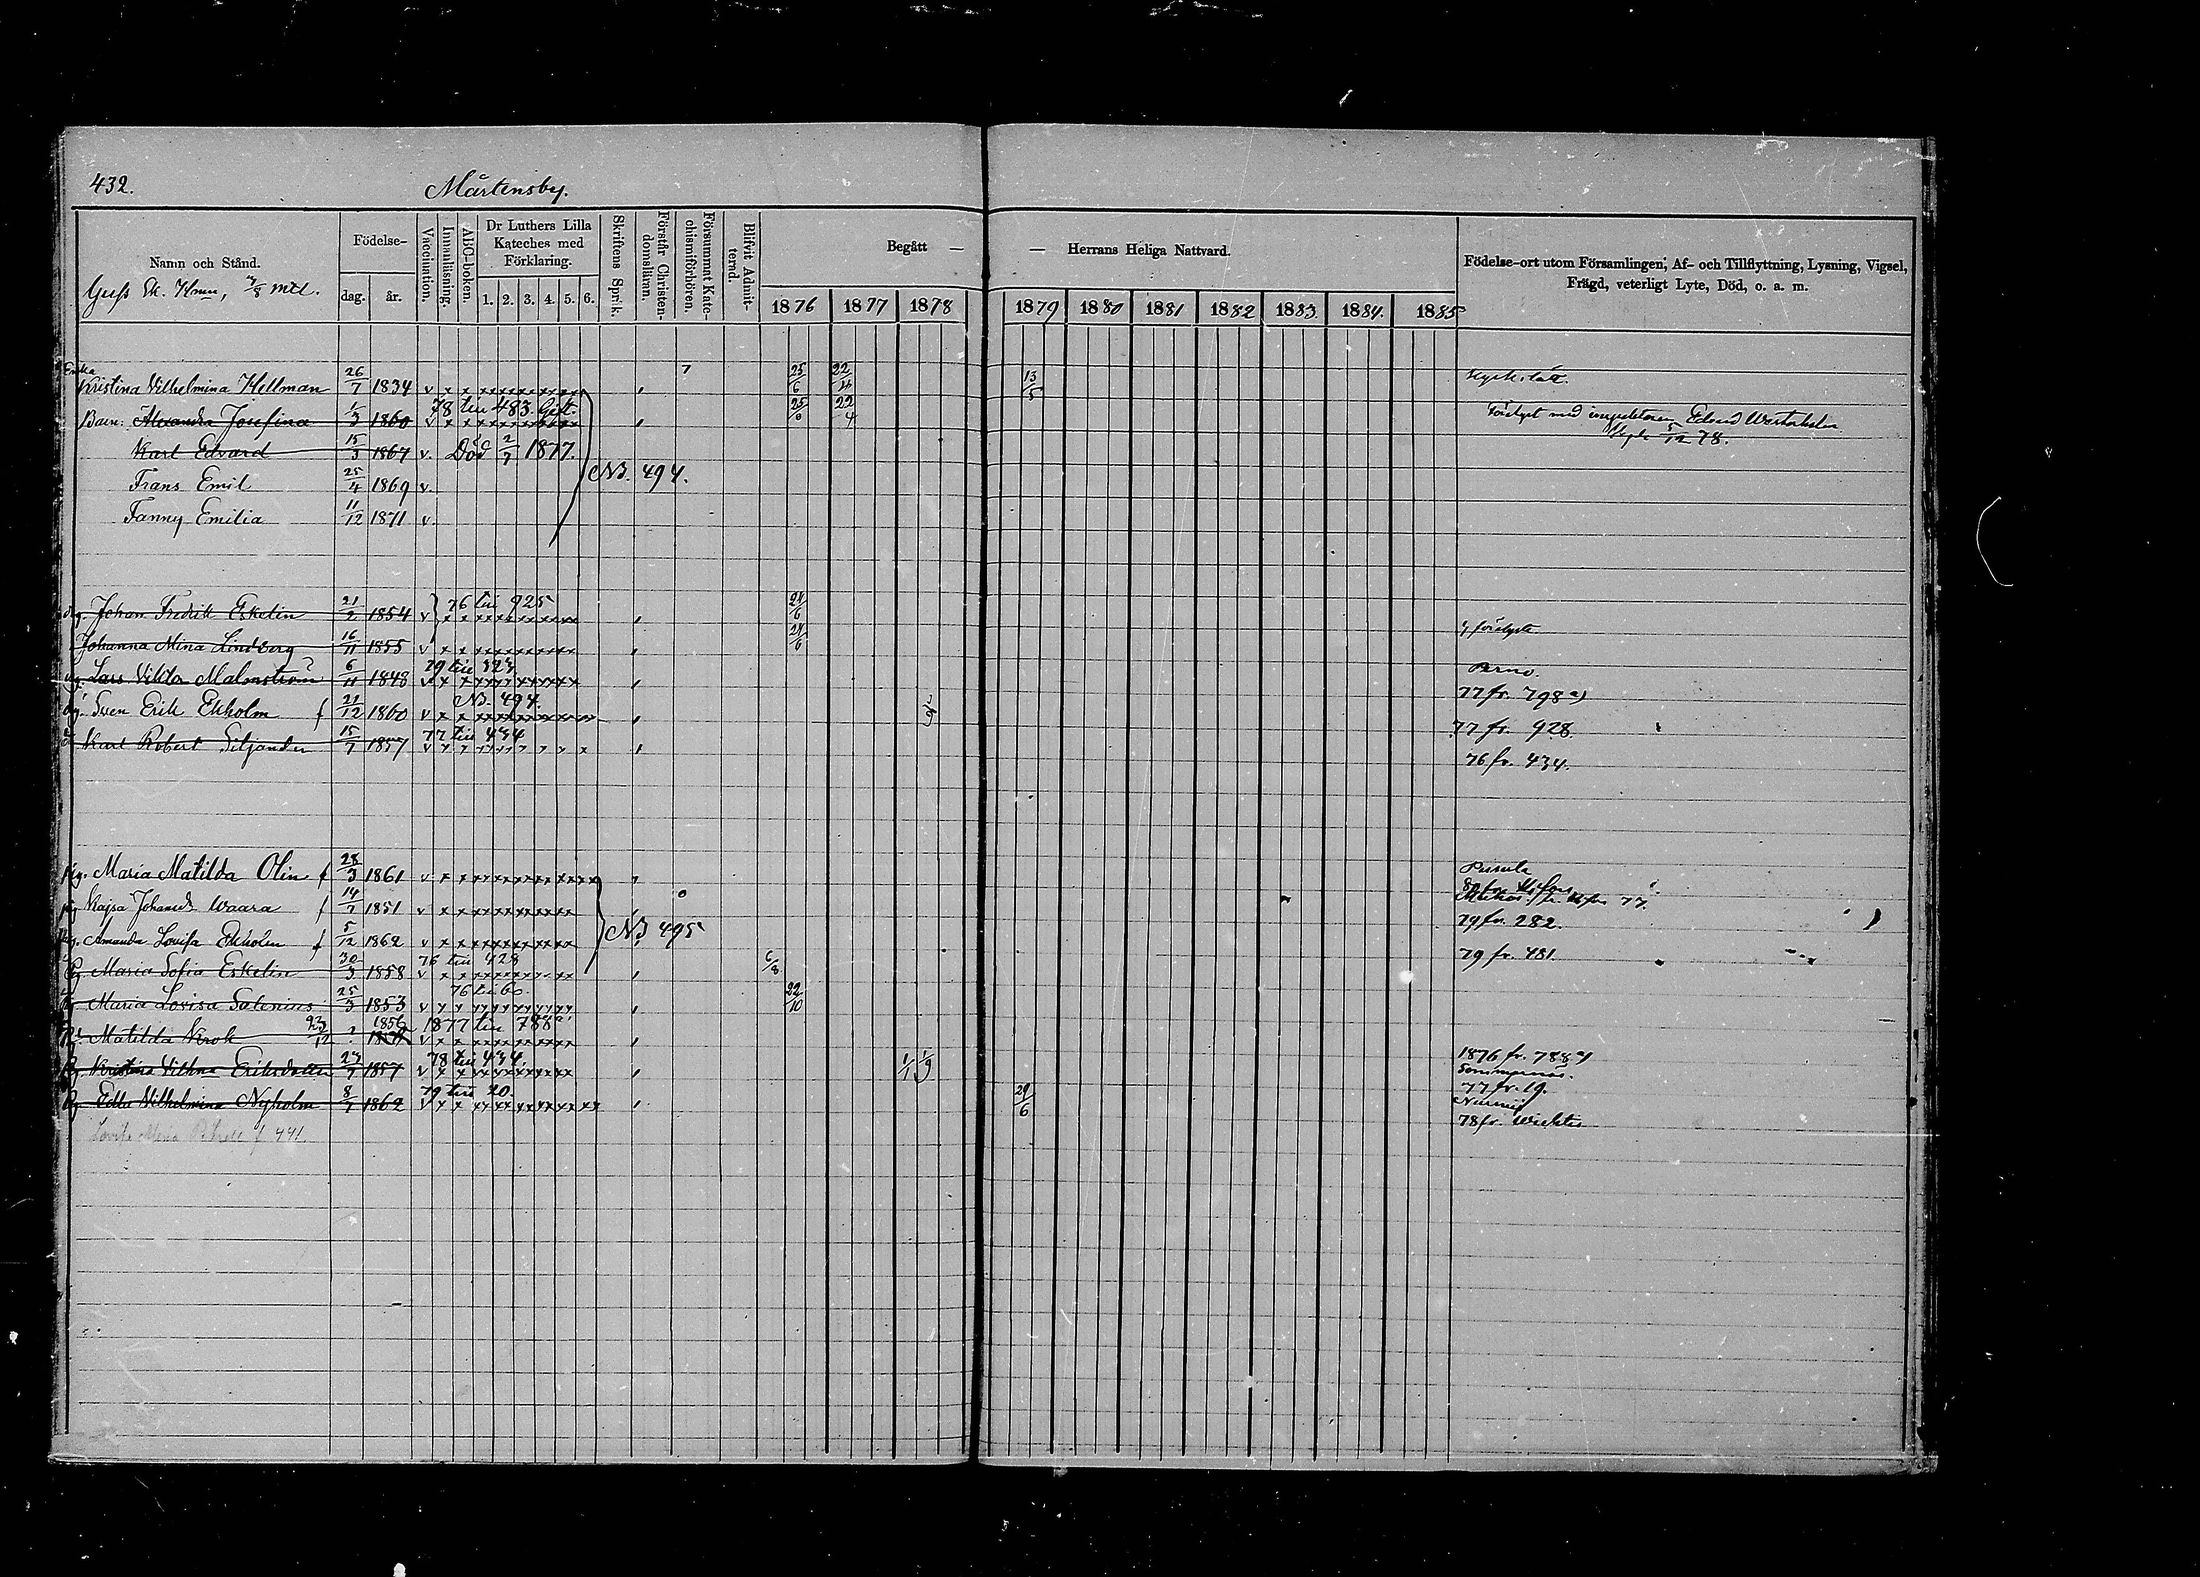 432.
Mårtensby.
Namn och Stånd.
Födelse-
dag. år.
Vaccination.
Innanläsning.
ABC-boken.
Dr Luthers Lilla Kateches med Förklaring.
1. 2. 3. 4. 5. 6.
Skriftens Språk.
Förstår Christendomslärann.
Försummat Katechismiförhören.
Blifvit Admitterad.
Begått — — Herrans Heliga Nattvard.
1876 1877 1878 1879 1880 1881 1882 1883 1884. 1885
Födelse-ort utom Församlingen, Af- och Tillflyttning, Lysning, Vigsel, Frägd, veterligt Lyte, Död, o. a. m.
Enka
Kristina Vilhelmina Hellman 26/7 1834 v 7 25/6 22/4 13/5
78 till 483. Gift.
Barn: Alexandra Josefina 1/3 1860 v 25/6 22/4 Edvard
5/12 78.
Karl Edvard 15/3 1867 v. Död 2/7 1877.
Frans Emil 25/4 1869 v. NB. 494.
Fanny Emilia 11/12 1871 v.
76 till 925
drg. Johan Fredrik Eskelin 21/2 1854 v 24/6
Johanna Mina Lindberg 16/11 1855 v 24/6
Lars Viktor Malmström 6/11 1848 Perno.
77 fr. 798 a)
NB. 494.
Sven Erik Ekholm f 21/12 1860 v 77 fr. 928.
77 till 434
Karl Robert Siljander 15/7 1857 v 76 fr. 434.
pig. Maria Matilda Olin f 28/3 1861 v Pusula
Kajsa Johansd. Waara f 14/7 1851 v 0 77.
79 fr. 282.
Amanda Lovisa Ekholm f 5/12 1862 v NB 495
79 fr. 481.
76 till 428
Maria Sofia Eskelin 30/3 1858 v 6/8
76 till 60
Maria Lovisa Salenius 25/3 1853 v 22/10
1856 1877 till 788 a)
Matilda Krok v 1876 fr. 788 a)
78 till 434.
Kristina Vilhna Eriksdotter 1857 v 77 fr. 19.
79 till 20.
Edla Vilhelmina Nyholm 8/7 1862 v 29/6 78 fr. Wichtis
Lovisa Mina f 441.